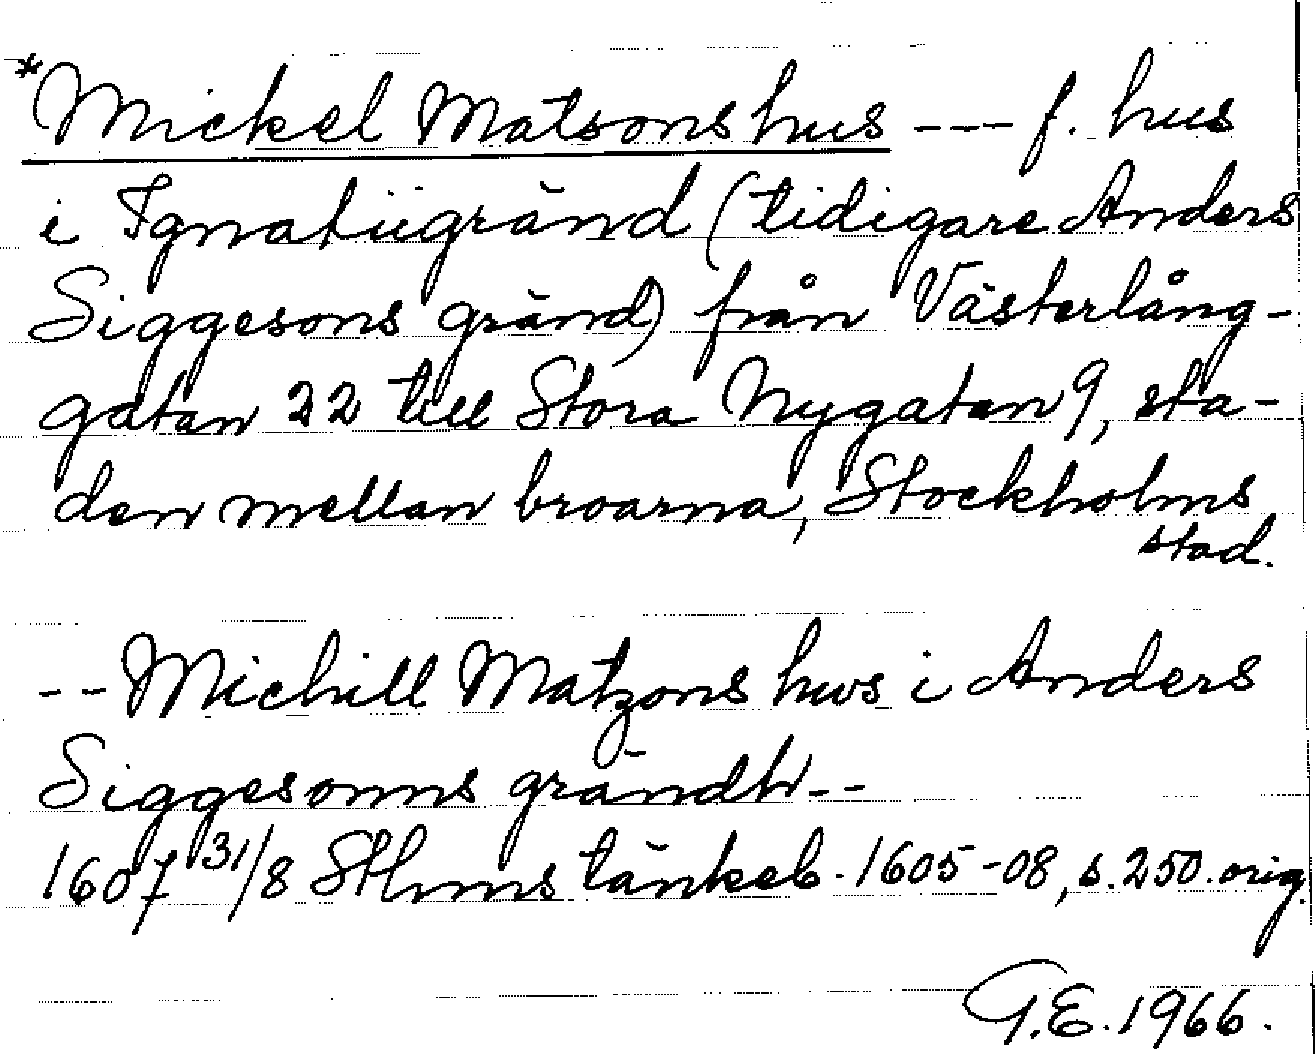 *Mickel Matsons hus --- f. hus
i Ignatiigränd (tidigare Anders
Siggesons gränd) från Västerlång-
gatan 22 till Stora Nygatan 9, sta-
den mellan broarna, Stockholms
stad.
-- Michill Matzons hws i Anders
Siggesonns grändh --
1607 31/8 Sthms tänkeb. 1605-08, s. 250. orig.
G.E. 1966.